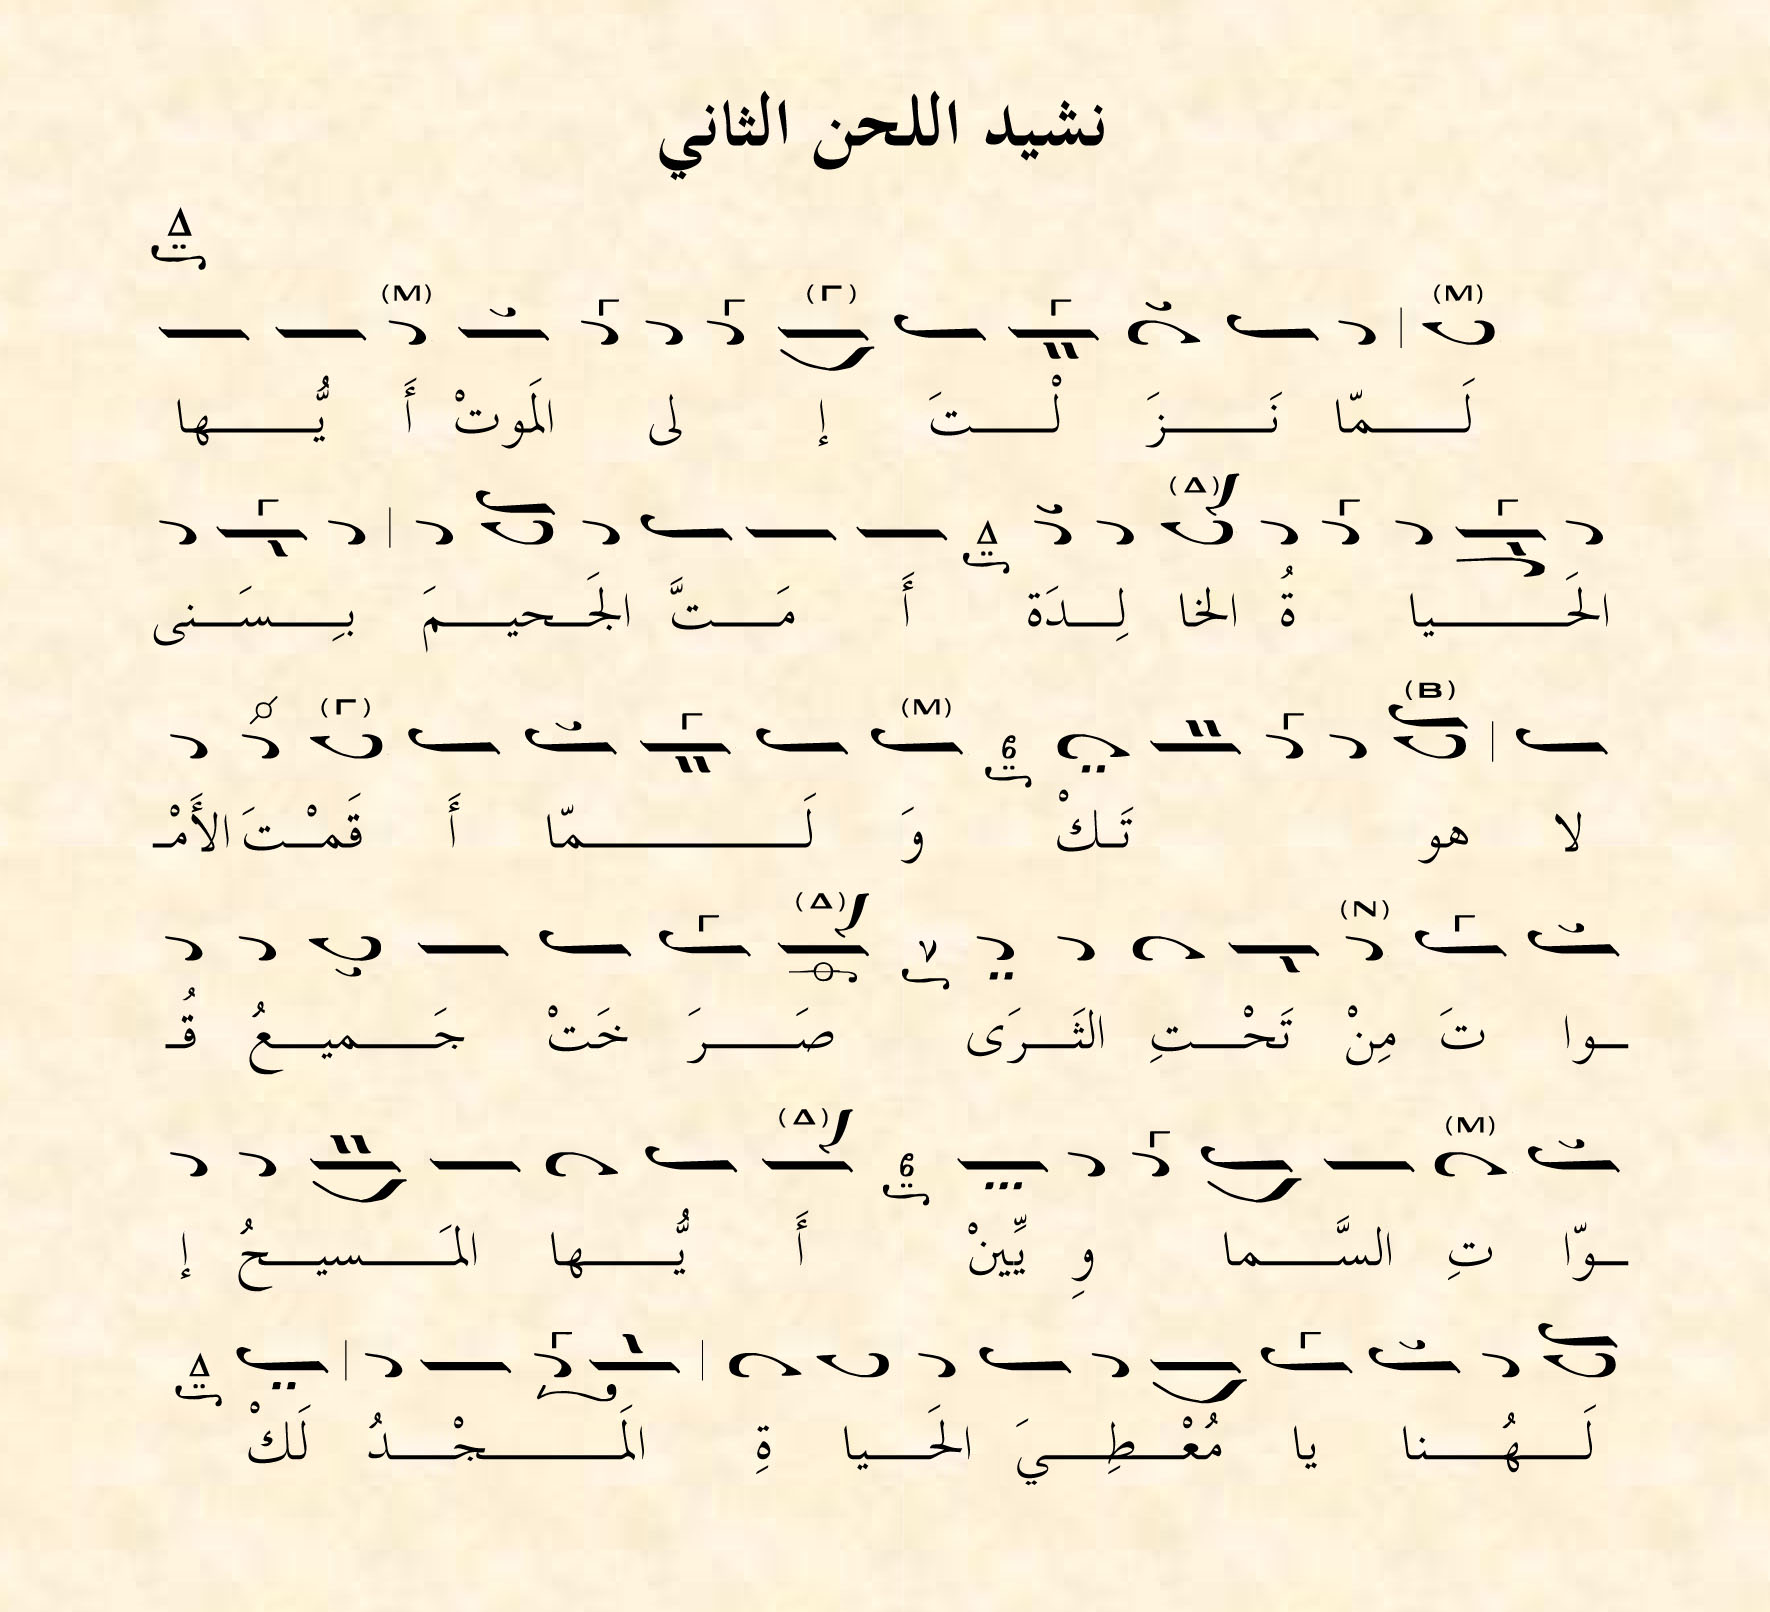 نشيد اللحن الثاني
Δ
(M) (Γ) (M)
لَـــمّا نَـــزَ لْـــتَ إ لى المَوتْ أَ يُّـــها
(Δ) Δ
الحَـــيا ةُ الخا لِـــدَة أَ مَـــتَّ الجَـــحيـــمَ بِـــسَـــنى
(B) (M) (Γ)
لا هو تَـكْ وَ لَـــمّا أَ قَمْـــتَ الأَمْـ
(N) (Δ)
ـوا تَ مِنْ تَحْـــتِ الثَـــرَى صَـــرَ خَتْ جَـــميـــعُ قُـ
(M) (Δ)
ـوّا تِ السَّـــما وِ يِّينْ أَ يُّـــها المَـــسيـــحُ إ
Δ
لَـــهُـــنا يا مُعْـــطِـــيَ الحَـــيا ةِ المَـــجْـــدُ لَكْ